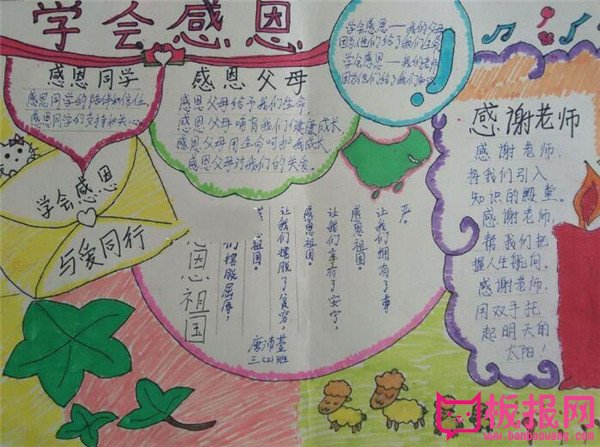 学会感恩
感恩同学
感恩同学的陪伴和信任,
感恩同学的支持和关心。
感恩父母
感恩父母给予我们生命,
感恩父母哺育我们健康成长,
感恩父母用生命呵护我成长,
感恩父母对我们的关爱。
学会感恩——我的父母
因为他们给了我们生命
学会感恩——我的老师
因为他们给了我们知识
学会感恩
与爱同行
感谢老师
感谢老师,
将我们引入
知识的殿堂。
感谢老师,
帮我们把
握人生航向。
感谢老师,
用双手托
起明天的
太阳!
感恩祖国
让我们摆脱了贫穷,
感恩祖国。
让我们享有了安宁,
感恩祖国。
让我们拥有了尊
严。
唐沛萱
三(2)班
板报网
www.banbaowang.com